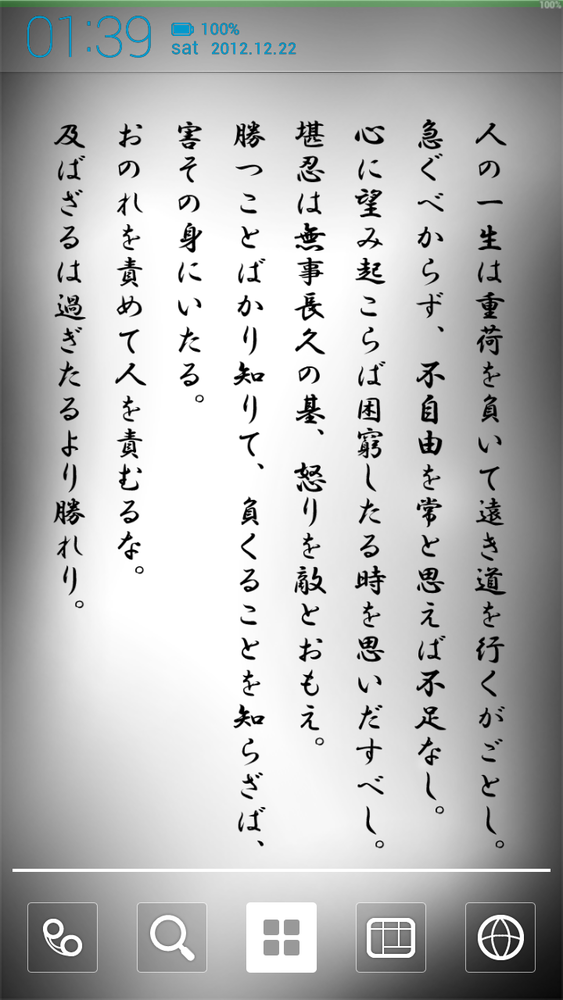 100%
01:39
100%
sat 2012.12.22
人の一生は重荷を負いて遠き道を行くがごとし。
急ぐべからず、不自由を常と思えば不足なし。
心に望み起こらば困窮したる時を思いだすべし。
堪忍は無事長久の基、怒りを敵とおもえ。
勝つことばかり知りて、負くることを知らざば、
害その身にいたる。
おのれを責めて人を責むるな。
及ばざるは過ぎたるより勝れり。